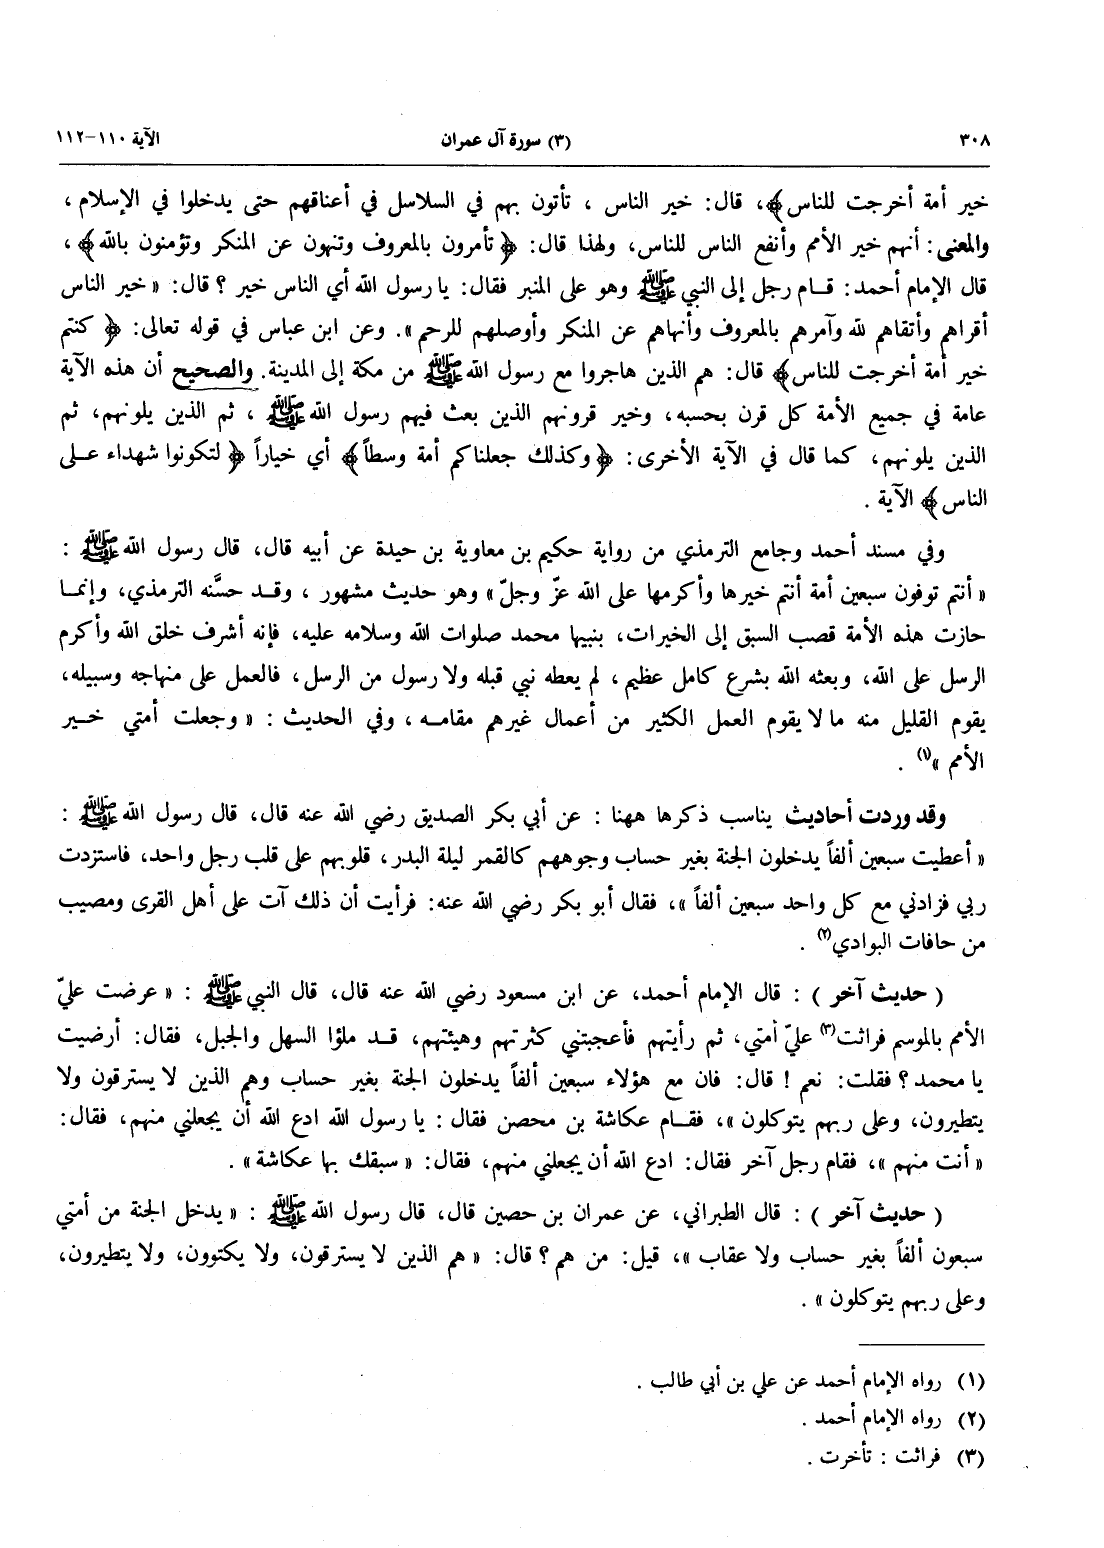 ٣٠٨ (٣) سورة آل عمران الآية ١١٠-١١٢
خير أمة أخرجت للناس﴾، قال: خير الناس ، تأتون بهم في السلاسل في أعناقهم حتى يدخلوا في الإسلام ،
والمعنى: أنهم خير الأمم وأنفع الناس للناس، ولهذا قال: ﴿ تأمرون بالمعروف وتنهون عن المنكر وتؤمنون بالله﴾ ،
قال الإمام أحمد: قـام رجل إلى النبي ﷺ وهو على المنبر فقال: يا رسول الله أي الناس خير ؟ قال: « خير الناس
أقراهم وأتقاهم لله وآمرهم بالمعروف وأنهاهم عن المنكر وأوصلهم للرحم ». وعن ابن عباس في قوله تعالى: ﴿ كنتم
خير أمة أخرجت للناس﴾ قال: هم الذين هاجروا مع رسول الله ﷺ من مكة إلى المدينة. والصحيح أن هذه الآية
عامة في جميع الأمة كل قرن بحسبه، وخير قرونهم الذين بعث فيهم رسول الله ﷺ ، ثم الذين يلونهم، ثم
الذين يلونهم، كما قال في الآية الأخرى: ﴿ وكذلك جعلناكم أمة وسطاً﴾ أي خياراً ﴿ لتكونوا شهداء عـلى
الناس﴾ الآية .
وفي مسند أحمد وجامع الترمذي من رواية حكيم بن معاوية بن حيدة عن أبيه قال، قال رسول الله ﷺ :
« أنتم توفون سبعين أمة أنتم خيرها وأكرمها على الله عزّ وجلّ » وهو حديث مشهور ، وقـد حسَّنه الترمذي، وإنمـا
حازت هذه الأمة قصب السبق إلى الخيرات، بنبيها محمد صلوات الله وسلامه عليه، فإنه أشرف خلق الله وأكرم
الرسل على الله، وبعثه الله بشرع كامل عظيم، لم يعطه نبي قبله ولا رسول من الرسل، فالعمل على منهاجه وسبيله،
يقوم القليل منه ما لا يقوم العمل الكثير من أعمال غيرهم مقامـه ، وفي الحديث : « وجعلت أمتي خـير
الأمم »(١) .
وقد وردت أحاديث يناسب ذكرها ههنا : عن أبي بكر الصديق رضي الله عنه قال، قال رسول الله ﷺ :
« أعطيت سبعين ألفاً يدخلون الجنة بغير حساب وجوههم كالقمر ليلة البدر، قلوبهم على قلب رجل واحد، فاستزدت
ربي فزادني مع كل واحد سبعين ألفاً »، فقال أبو بكر رضي الله عنه: فرأيت أن ذلك آت على أهل القرى ومصيب
من حافات البوادي(٢) .
( حديث آخر ) : قال الإمام أحمد، عن ابن مسعود رضي الله عنه قال، قال النبي ﷺ : « عرضت عليّ
الأمم بالموسم فراثت(٣) عليّ أمتي، ثم رأيتهم فأعجبتني كثرتهم وهيئتهم، قـد ملؤا السهل والجبل، فقال: أرضيت
يا محمد ؟ فقلت: نعم ! قال: فان مع هؤلاء سبعين ألفاً يدخلون الجنة بغير حساب وهم الذين لا يسترقون ولا
يتطيرون، وعلى ربهم يتوكلون »، فقـام عكاشة بن محصن فقال : يا رسول الله ادع الله أن يجعلني منهم، فقال:
« أنت منهم »، فقام رجل آخر فقال: ادع الله أن يجعلني منهم، فقال: « سبقك بها عكاشة » .
( حديث آخر ) : قال الطبراني، عن عمران بن حصين قال، قال رسول الله ﷺ : « يدخل الجنة من أمتي
سبعون ألفاً بغير حساب ولا عقاب »، قيل: من هم ؟ قال: « هم الذين لا يسترقون، ولا يكتوون، ولا يتطيرون،
وعلى ربهم يتوكلون » .
(١) رواه الإمام أحمد عن علي بن أبي طالب .
(٢) رواه الإمام أحمد .
(٣) فراثت : تأخرت .